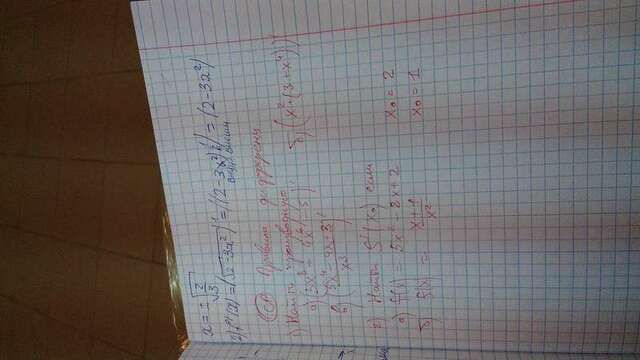 x = ± √(2/3)
2) f'(x) = (√2-3x²)' = ((2-3x²)) = (2-3x²)
Правила дифференц
1) Найти производную
а) (3x³ - 4x² - 5)' б) (x²·(3+x⁴))'
в) (5x⁴ - 4x + 3 / x³)'
2) Найти f'(x₀) если
а) f(x) = 5x² - 8x + 2 x₀ = 2
б) f(x) = x+1 / x² x₀ = 1